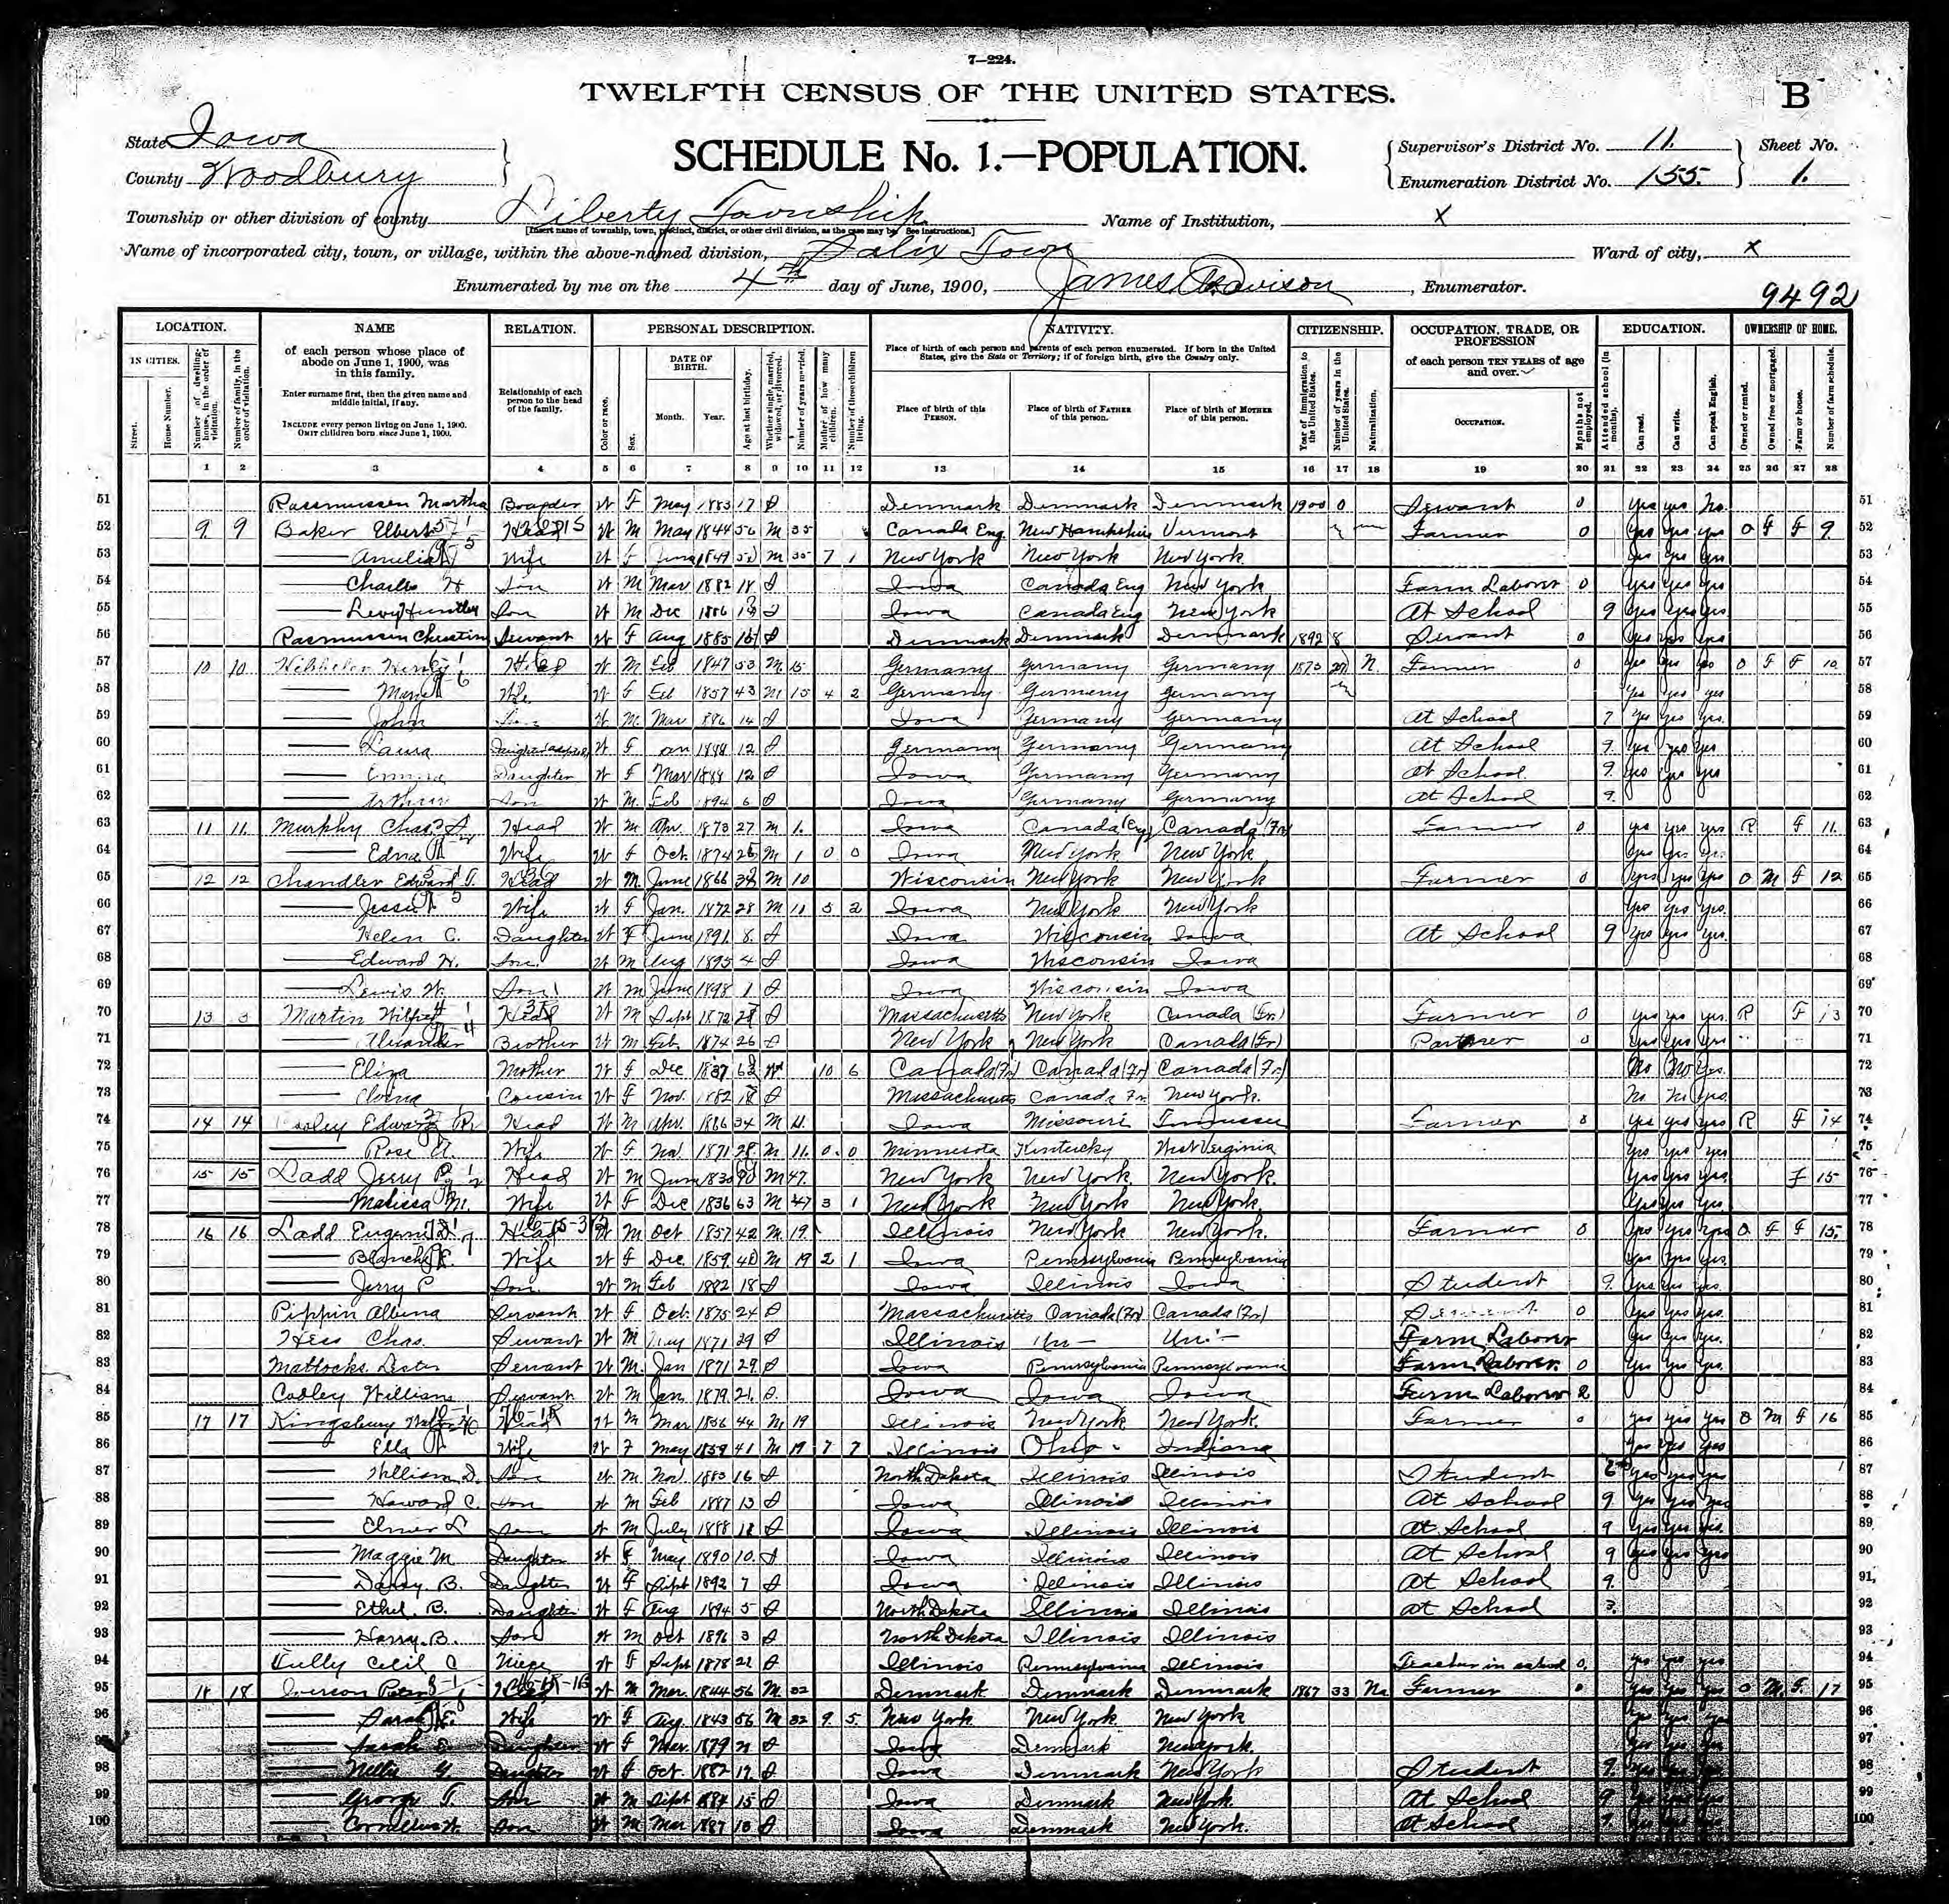 7—224.
TWELFTH CENSUS OF THE UNITED STATES.
B
State Iowa
SCHEDULE No. 1.—POPULATION.
Supervisor's District No. 11.
Sheet No.
County Woodbury
Enumeration District No. 155.
1.
Township or other division of county Liberty Township
Name of Institution, X
[Insert name of township, town, precinct, district, or other civil division, as the case may be. See instructions.]
Name of incorporated city, town, or village, within the above-named division, Salix Town
Ward of city, X
Enumerated by me on the 4th day of June, 1900, James Davison, Enumerator.
9492
LOCATION. NAME RELATION. PERSONAL DESCRIPTION. NATIVITY. CITIZENSHIP. OCCUPATION, TRADE, OR PROFESSION EDUCATION. OWNERSHIP OF HOME.
IN CITIES.
Street.
House Number.
Number of dwelling-house, in the order of visitation.
Number of family, in the order of visitation.
of each person whose place of abode on June 1, 1900, was in this family.
Enter surname first, then the given name and middle initial, if any.
INCLUDE every person living on June 1, 1900.
OMIT children born since June 1, 1900.
Relationship of each person to the head of the family.
Color or race.
Sex.
DATE OF BIRTH.
Month. Year.
Age at last birthday.
Whether single, married, widowed, or divorced.
Number of years married.
Mother of how many children.
Number of these children living.
Place of birth of each person and parents of each person enumerated. If born in the United States, give the State or Territory; if of foreign birth, give the Country only.
Place of birth of this PERSON.
Place of birth of FATHER of this person.
Place of birth of MOTHER of this person.
Year of immigration to the United States.
Number of years in the United States.
Naturalization.
of each person TEN YEARS of age and over.
OCCUPATION.
Months not employed.
Attended school (in months).
Can read.
Can write.
Can speak English.
Owned or rented.
Owned free or mortgaged.
Farm or house.
Number of farm schedule.
1 2 3 4 5 6 7 8 9 10 11 12 13 14 15 16 17 18 19 20 21 22 23 24 25 26 27 28
51 Rasmussen Martha Boarder W F May 1883 17 S Denmark Denmark Denmark 1900 0 Servant 0 yes yes No 51
52 9 9 Baker Elbert Head W M May 1844 56 M 35 Canada Eng. New Hampshire Vermont Farmer 0 yes yes yes O F F 9 52
53 Amelia Wife W F 1849 M 35 7 1 New York New York New York yes yes yes 53
54 Charles H Son W M Mar 1882 18 S Iowa Canada Eng New York Farm Laborer 0 yes yes yes 54
55 Levy Huntley Son W M Dec 1886 13 S Iowa Canada Eng New York At School 9 yes yes yes 55
56 Rasmussen Christin Servant W F Aug 1885 S Denmark Denmark Denmark 1892 8 Servant 0 yes yes yes 56
57 10 10 Henry Head W M Feb 1847 53 M 15 Germany Germany Germany 1873 27 N. Farmer 0 yes yes yes O F F 10 57
58 Wife W F Feb 1857 43 M 15 4 2 Germany Germany Germany yes yes yes 58
59 John Son W M Mar 886 14 S Iowa Germany Germany At School 7 yes yes yes 59
60 Laura W F an 1888 12 S Germany Germany Germany At School 9 yes yes yes 60
61 Emma Daughter W F Mar 1888 12 S Iowa Germany Germany At School 9 yes yes yes 61
62 Arthur Son W M Feb 1894 6 S Iowa Germany Germany At School 9 62
63 11 11 Murphy Chas. A Head W M Apr. 1873 27 M 1 Iowa Canada (Eng) Canada (Fr) Farmer 0 yes yes yes R F 11 63
64 Edna Wife W F Oct. 1874 25 M 1 0 0 Iowa New York New York yes yes yes 64
65 12 12 Chandler Edward T. Head W M June 1866 M 10 Wisconsin New York New York Farmer 0 yes yes yes O M F 12 65
66 Jessie Wife W F Jan. 1872 28 M 10 3 2 Iowa New York New York yes yes yes 66
67 Helen C. Daughter W F June 1891 8 S Iowa Wisconsin Iowa At School 9 yes yes yes 67
68 Edward H. Son W M Aug 1895 4 S Iowa Wisconsin Iowa 68
69 Lewis W. Son W M June 1898 1 S Iowa Wisconsin Iowa 69
70 13 3 Martin Wilfred Head W M Sept 1872 27 S Massachusetts New York Canada (Fr) Farmer 0 yes yes yes R F 13 70
71 Alexander Brother W M Feb 1874 26 S New York New York Canada (Fr) Partner 0 yes yes yes 71
72 Eliza Mother W F Dec 1837 62 W 10 6 Canada (Fr) Canada (Fr) Canada (Fr) No No yes 72
73 Cousin W F Nov. 1882 S Massachusetts Canada Fr New York. No No yes 73
74 14 14 Cooley Edward R Head W M Apr. 1866 34 M 11 Iowa Missouri Tennessee Farmer 0 yes yes yes R F 14 74
75 Rose A. Wife W F Nov. 1871 28 M 11 0 0 Minnesota Kentucky West Virginia yes yes yes 75
76 15 15 Ladd Jerry P Head W M June 1830 M 47 New York New York New York yes yes yes F 15 76
77 Malissa M. Wife W F Dec 1836 63 M 47 3 1 New York New York New York yes yes yes 77
78 16 16 Ladd Eugene D. Head W M Oct 1857 42 M 19 Illinois New York New York. Farmer 0 yes yes yes O F F 15 78
79 Blanch E. Wife W F Dec. 1859 40 M 19 2 1 Iowa Pennsylvania Pennsylvania yes yes yes 79
80 Jerry P Son W M Feb 1882 18 S Iowa Illinois Iowa Student 9 yes yes yes 80
81 Pippin Albina Servant W F Oct. 1875 24 S Massachusetts Canada (Fr) Canada (Fr) 0 yes yes yes 81
82 Hess Chas. Servant W M May 1871 29 S Illinois Un — Un — Farm Laborer yes yes yes 82
83 Matlocks Lester Servant W M Jan 1871 29 S Iowa Pennsylvania Pennsylvania Farm Laborer 0 yes yes yes 83
84 Cooley William Servant W M Jan 1879 21 S Iowa Iowa Iowa Farm Laborer 2 84
85 17 17 Kingsbury Head W M Mar 1856 44 M 19 Illinois New York New York. Farmer 0 yes yes yes O M F 16 85
86 Ella Wife W F May 1859 41 M 19 7 7 Illinois Ohio Indiana yes yes yes 86
87 William D. Son W M Nov. 1883 16 S North Dakota Illinois Illinois Student 6 yes yes yes 87
88 Howard C. Son W M Feb 1887 13 S Iowa Illinois Illinois At School 9 yes yes yes 88
89 Elmer L Son W M July 1888 11 S Iowa Illinois Illinois At School 9 yes yes yes 89
90 Maggie M Daughter W F May 1890 10 S Iowa Illinois Illinois At School 9 yes yes yes 90
91 Daisy B. Daughter W F Sept 1892 7 S Iowa Illinois Illinois At School 9 91
92 Ethel B. Daughter W F Aug 1894 5 S North Dakota Illinois Illinois At School 92
93 Harry B. Son W M Oct 1896 3 S North Dakota Illinois Illinois 93
94 Cecil C Niece W F Sept 1878 21 S Illinois Pennsylvania Illinois Teacher in school 0 yes yes yes 94
95 18 18 Iverson Peter Head W M Mar. 1844 56 M 32 Denmark Denmark Denmark 1867 33 Na Farmer 0 yes yes yes O M F 17 95
96 Sarah E. Wife W F Aug. 1843 56 M 32 9 5 New York New York New York yes yes yes 96
97 Sarah E Daughter W F Mar. 1879 21 S Iowa Denmark New York. yes yes yes 97
98 Nellie G Daughter W F Oct. 1882 17 S Iowa Denmark New York Student 9 yes yes yes 98
99 George T. Son W M Sept 1884 15 S Iowa Denmark New York. At School 9 yes yes yes 99
100 Cornelius Son W M Mar 1887 13 S Iowa Denmark New York. At School 9 yes yes yes 100